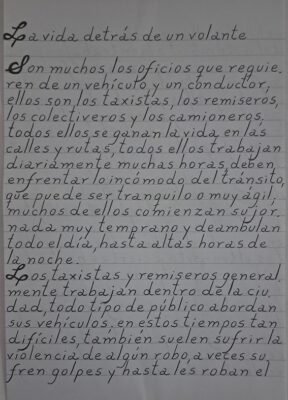 La vida detrás de un volante
Son muchos los oficios que requie.
ren de un vehículo y un conductor;
ellos son los taxistas, los remiseros,
los colectiveros y los camioneros.
todos ellos se ganan la vida en las
calles y rutas, todos ellos trabajan
diariamente muchas horas, deben
enfrentar lo incómodo del tránsito,
que puede ser tranquilo o muy ágil;
muchos de ellos comienzan su jor.
nada muy temprano y deambulan
todo el día, hasta altas horas de
la noche.
Los taxistas y remiseros general.
mente trabajan dentro de la ciu.
dad, todo tipo de público abordan
sus vehículos. en estos tiempos tan
difíciles, también suelen sufrir la
violencia de algún robo, a vetes su.
fren golpes y hasta les roban el